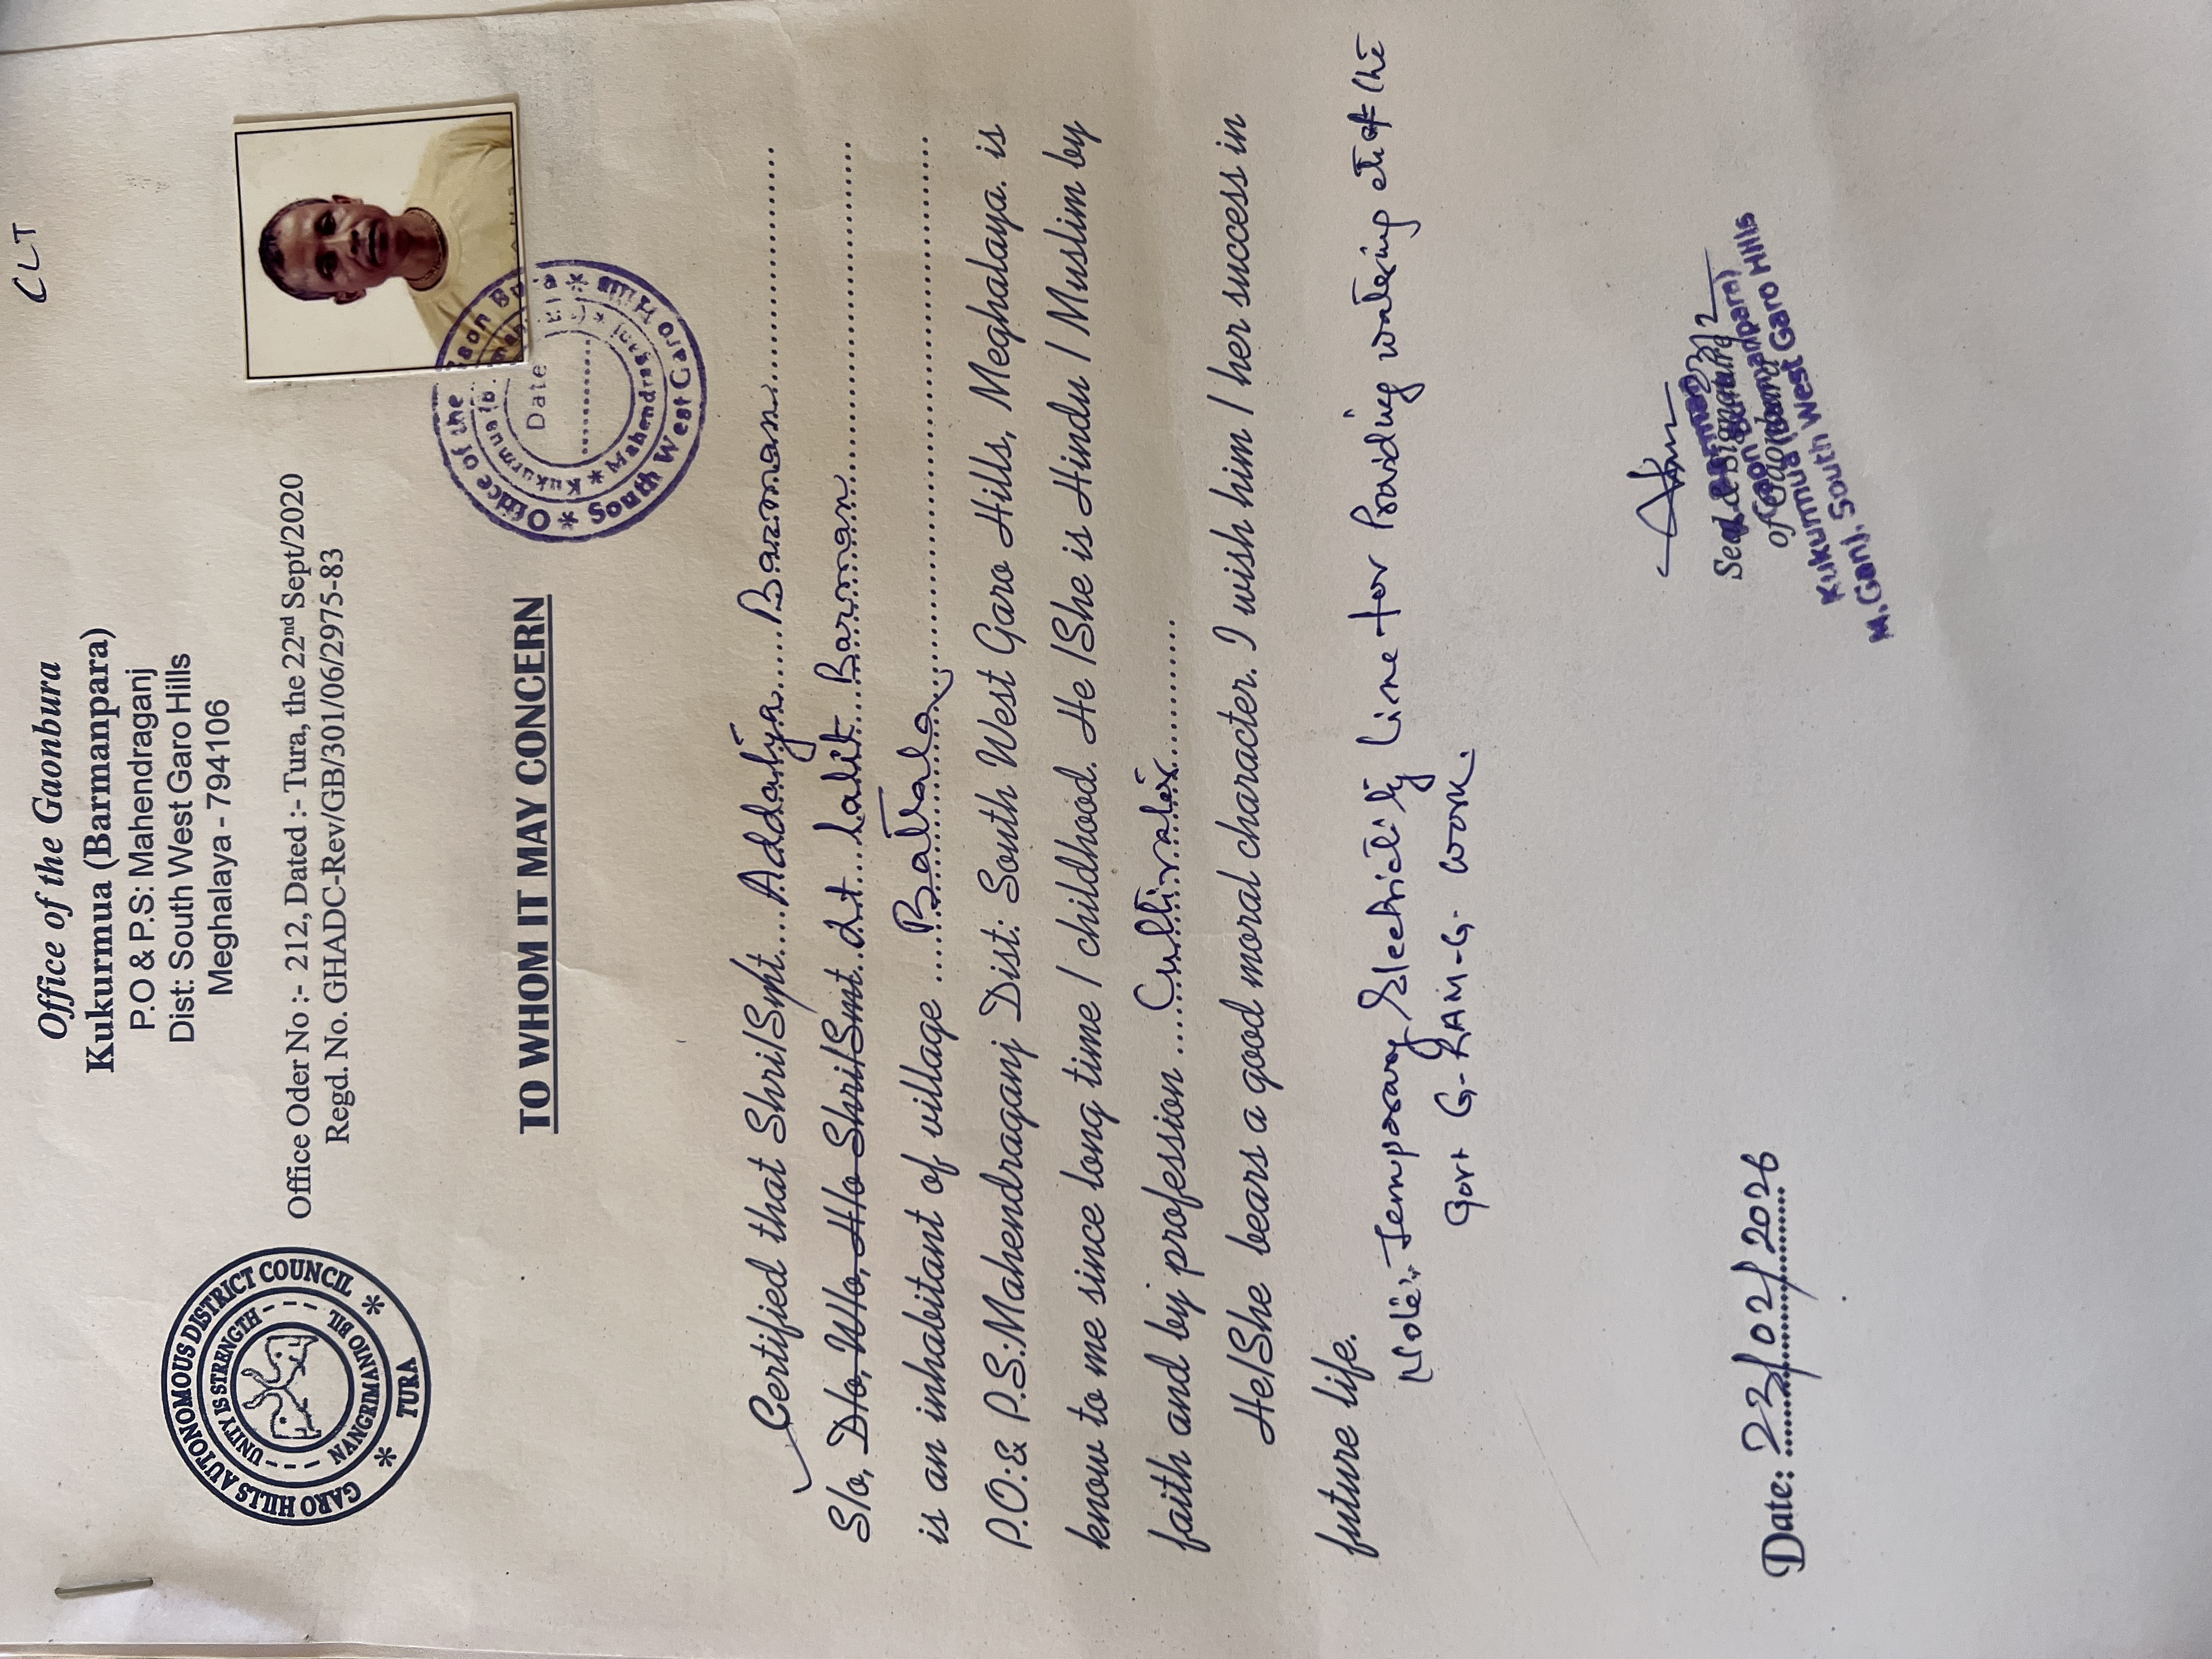 CLT
Office of the Gaonbura
Kukurmua (Barmanpara)
P.O & P.S: Mahendraganj
Dist: South West Garo Hills
Meghalaya - 794106
Office Oder No :- 212, Dated :- Tura, the 22nd Sept/2020
Regd. No. GHADC-Rev/GB/301/06/2975-83
GARO HILLS AUTONOMOUS DISTRICT COUNCIL
UNITY IS STRENGTH
NANGRIMANIO BIL
TURA
Office of the Gaon Bu
Kukurmua
Date
Mahendraganj
South West Garo Hills
TO WHOM IT MAY CONCERN
Certified that Shri/Smt....Addaitya.....Barman
S/o, D/o, W/o, H/o Shri/Smt..Lt...Lalit...Barman
is an inhabitant of village ....Batala
P.O:& P.S:Mahendraganj Dist: South West Garo Hills, Meghalaya. is
know to me since long time / childhood. He /She is Hindu / Muslim by
faith and by profession ....Cultivator
He/She bears a good moral character. I wish him / her success in
future life.
Note:- Temporary Electricity Line for Providing watering etc of the
Govt G-RAM-G- work.
23/2
Seal & Signature
of Gaonbura
Gaon Bura
Kukurmua (Barmanpara)
M.Ganj, South West Garo Hills
Date: 23/02/2026